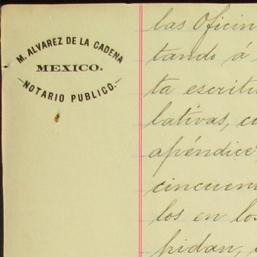 M. ALVAREZ DE LA CADENA
MEXICO.
NOTARIO PUBLICO.
las Oficin
tando á
ta escritu
lativas, co
apéndice
cincuen
los en los
pidan,